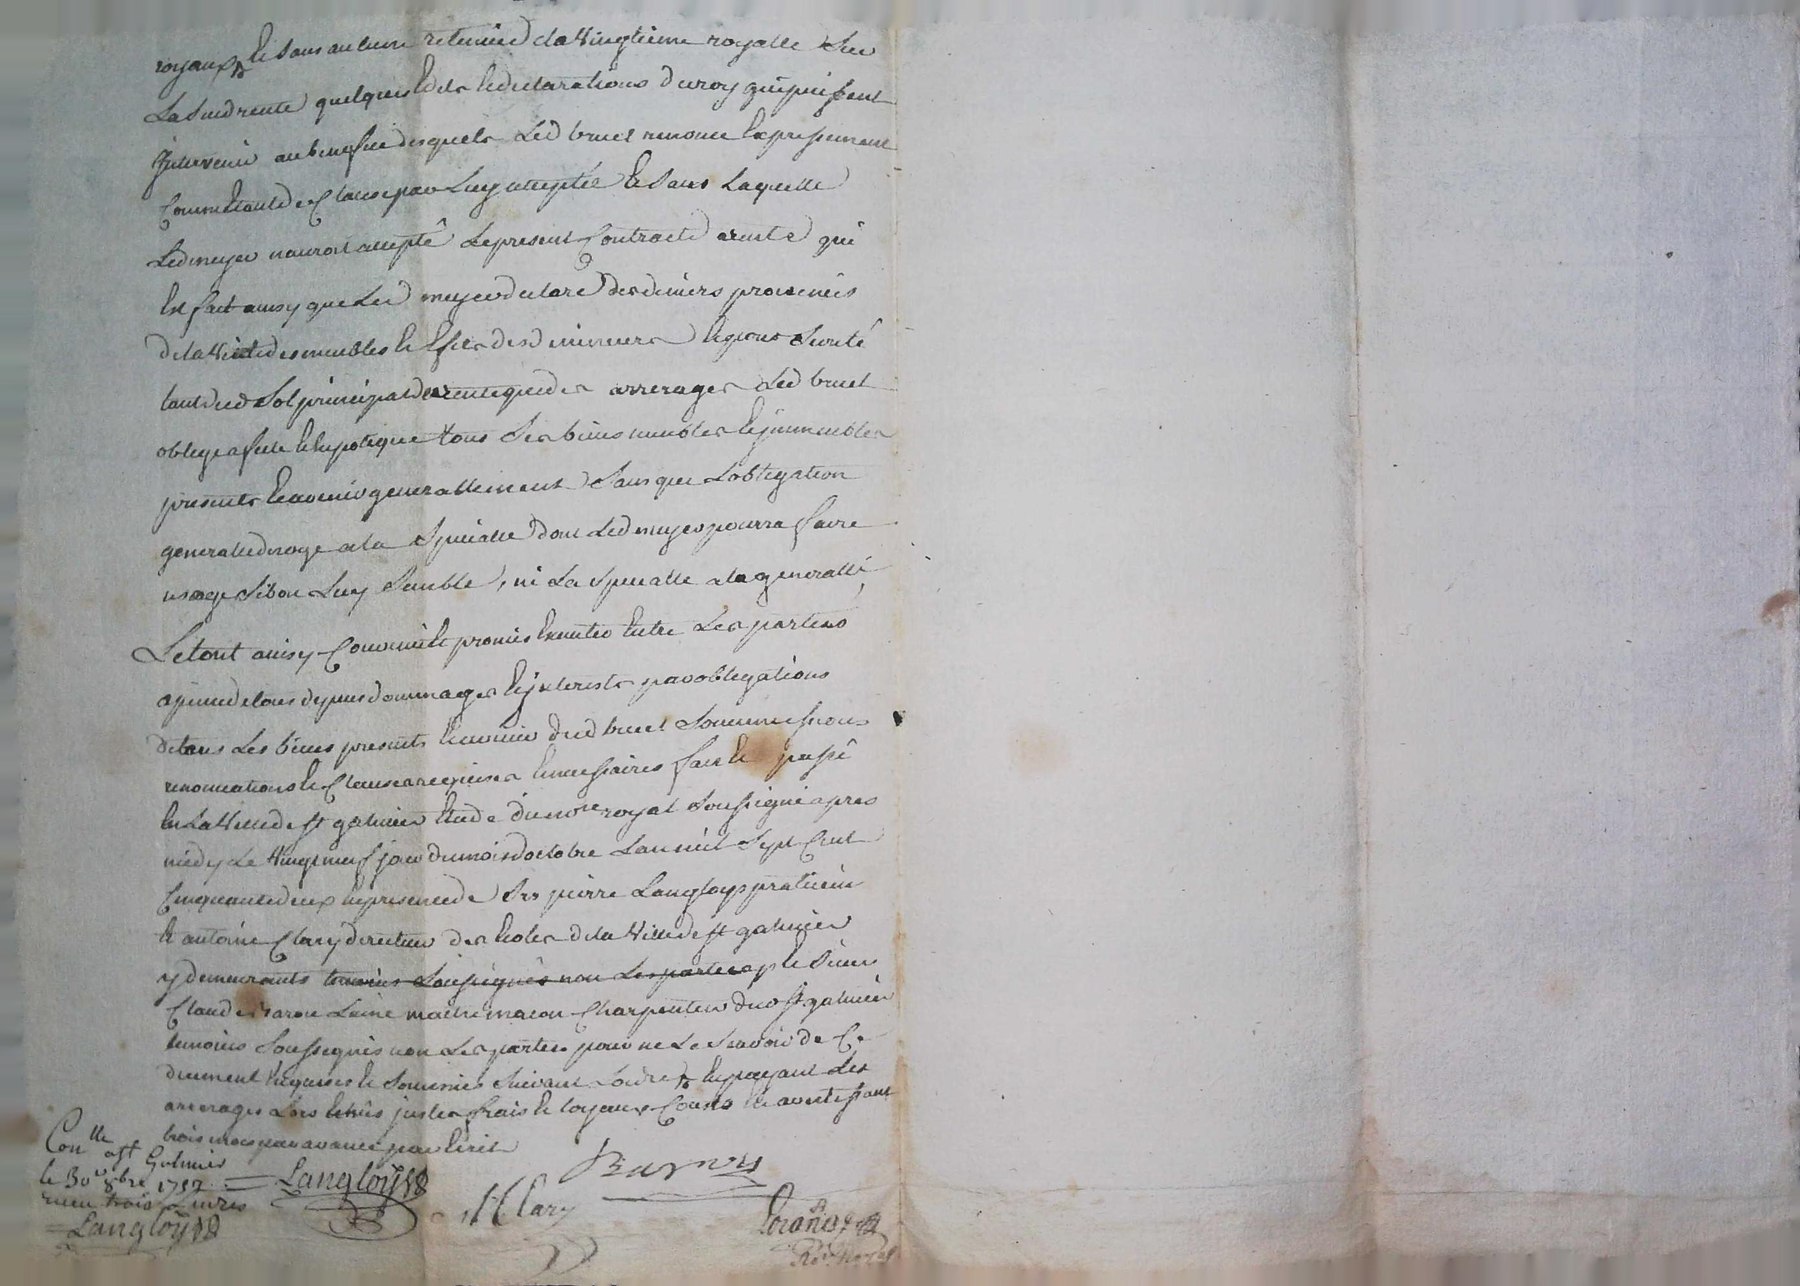 royaux et sans aucune retenüe de la Vingtieme royalle sur
La sud rente quelques Edits et declarations du roy qui puissent
jntervenir au benefice desquels Led bruel renonce Expressement
Comme etant de Clause par Luy acceptée et sans Laquelle
Led meyer nauroit accepté Le present Contract de rente qui
Est fait ainsy que Led meyer declare des deniers provenüs
de la Vente des meubles et Effets des mineurs Et pour Sureté
tant dud Sol principal de rente que des arrerages Led bruel
oblige affecte et hipoteque tous Ses biens meubles et jmmeubles
presents et avenir generallement Sans que Lobligation
generalle deroge a la Specialle dont Led meyer pourra faire
usage Si bon Luy Semble, ni La Specialle a la generalle
Le tout ainsy Convenü et promis Executer Entre Les parties
a peine de tous depens dommages et jnterests par obligations
de tous Les biens presents et avenir dud bruel Soummissions
renonciations et Clauses requises et necessaires fait et passé
En La Ville de st galmier Etude du nore royal Soussigné apres
midy Le Vingt neuf jour du mois doctobre Lan mil Sept Cent
Cinquante deux En presence de Srs pierre Langloys praticien
et antoine Clary directeur des Ecoles de la Ville de st galmier
y demeurants temoins Soussignés non Les parties et Sieur
Claude Laine maitre macon Charpentier dud st galmier
temoins Soussignés non Les parties pour ne Le Scavoir de Ce
düement Enquises et Sommées Suivant Lordre En payant Les
arrerages Lors Echüs justes frais et loyaux Couts En avertissant
trois mois par avance par Ecrit
Conlle a St Galmier
le 30 8bre 1752
receu trois Livres
Langloys
Langloys
Clary